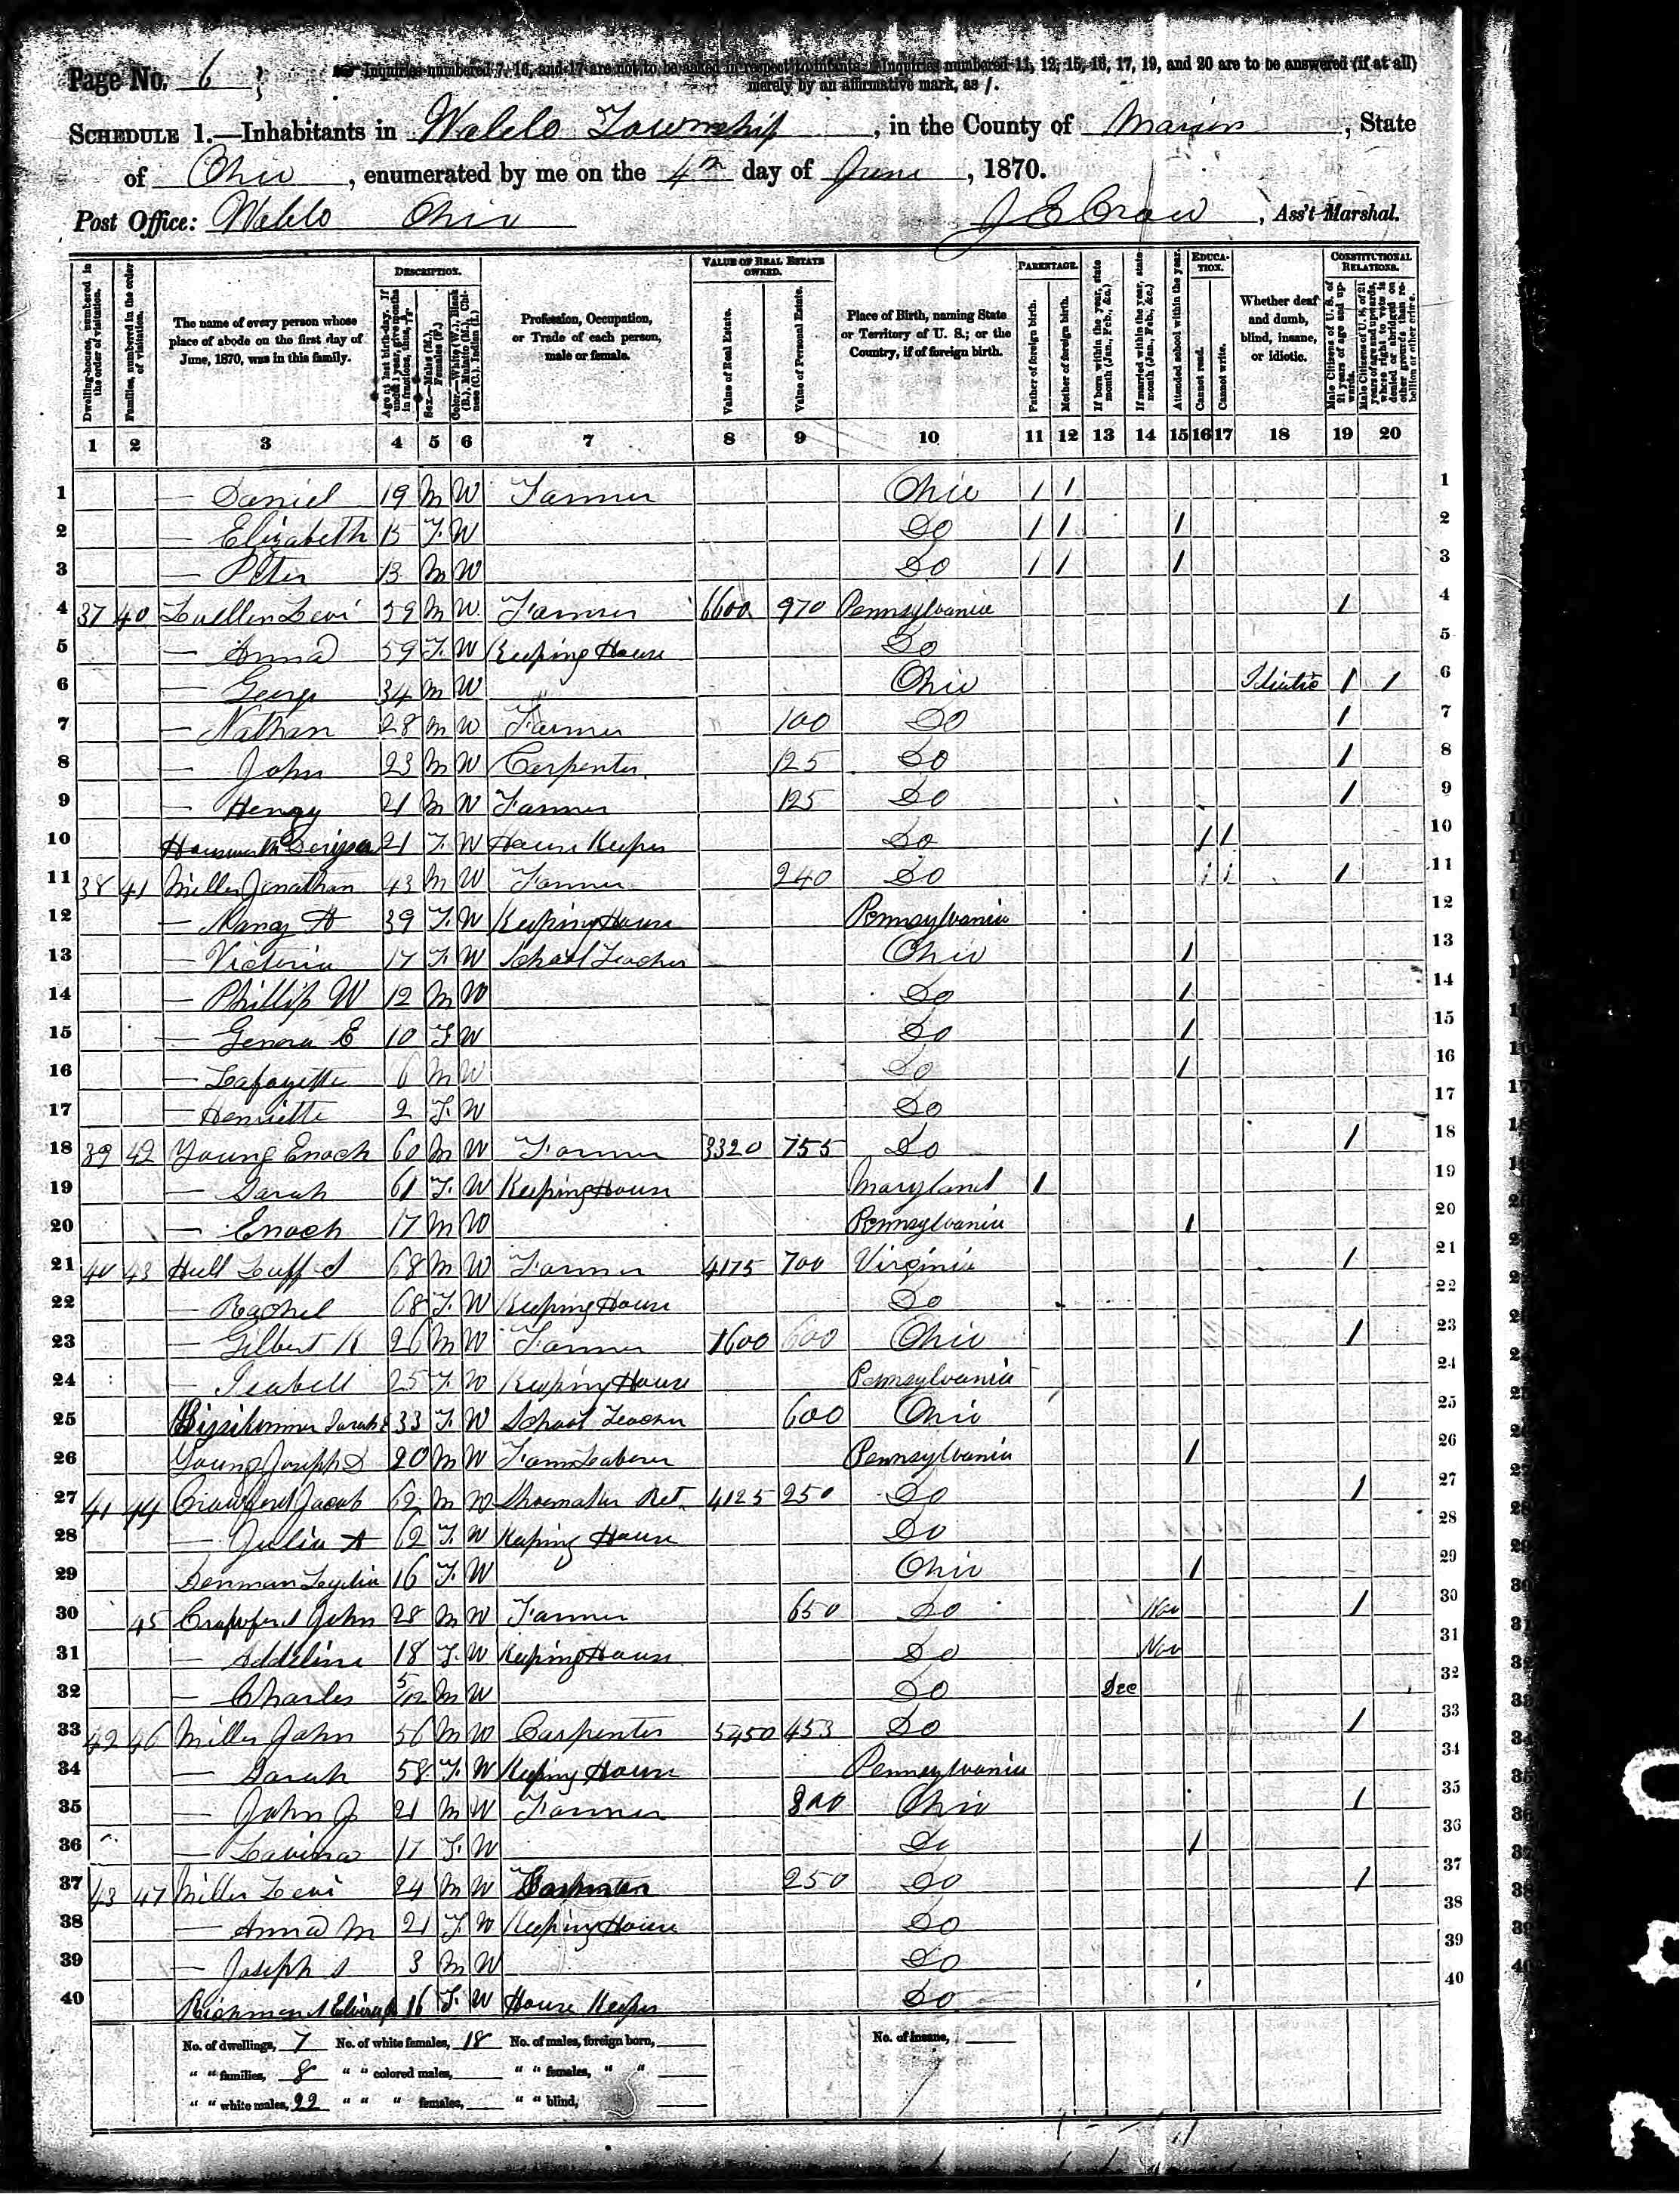 Page No. 6
Inquiries numbered 7, 16, and 17 are not to be asked in respect to infants. Inquiries numbered 11, 12, 15, 16, 17, 19, and 20 are to be answered (if at all)
merely by an affirmative mark, as /.
SCHEDULE 1.—Inhabitants in Waldo Township, in the County of Marion, State
of Ohio, enumerated by me on the 4th day of June, 1870.
Post Office: Waldo Ohio J E Craw, Ass't Marshal.
Dwelling-houses, numbered in the order of visitation.
Families, numbered in the order of visitation.
The name of every person whose place of abode on the first day of June, 1870, was in this family.
DESCRIPTION.
Age at last birth-day. If under 1 year, give months in fractions, thus,
Sex.—Males (M.), Females (F.)
Color.—White (W.), Black (B.), Mulatto (M.), Chinese (C.), Indian (I.)
Profession, Occupation, or Trade of each person, male or female.
VALUE OF REAL ESTATE OWNED.
Value of Real Estate.
Value of Personal Estate.
Place of Birth, naming State or Territory of U. S.; or the Country, if of foreign birth.
PARENTAGE.
Father of foreign birth.
Mother of foreign birth.
If born within the year, state month (Jan., Feb., &c.)
If married within the year, state month (Jan., Feb., &c.)
Attended school within the year.
EDUCATION.
Cannot read.
Cannot write.
Whether deaf and dumb, blind, insane, or idiotic.
CONSTITUTIONAL RELATIONS.
Male Citizens of U. S. of 21 years of age and upwards.
Male Citizens of U. S. of 21 years of age and upwards, whose right to vote is denied or abridged on other grounds than rebellion or other crime.
1 2 3 4 5 6 7 8 9 10 11 12 13 14 15 16 17 18 19 20
1 — Daniel 19 M W Farmer Ohio / / 1
2 — Elizabeth 15 F. W Do / / / 2
3 — Peter 13 M W Do / / / 3
4 37 40 Luellen Levi 59 M W. Farmer 6600 970 Pennsylvania / 4
5 — Anna 59 F. W Keeping House Do 5
6 — George 34 M W Ohio Idiotic / / 6
7 — Nathan 28 M W Farmer 100 Do / 7
8 — John 23 M W Carpenter 125 Do / 8
9 — Henry 21 M W Farmer 125 Do / 9
10 21 F. W House Keeper Do / / 10
11 38 41 Miller Jonathan 43 M W Farmer 240 Do / / / 11
12 — Nancy A 39 F. W Keeping House Pennsylvania 12
13 — Victoria 17 F. W School Teacher Ohio / 13
14 — Phillip W 12 M W Do / 14
15 — Genora E 10 F W Do / 15
16 — Lafayette 6 M W Do / 16
17 — Henriette 2 F. W Do 17
18 39 42 Young Enoch 60 M W Farmer 3320 755 Do / 18
19 — Sarah 61 F. W Keeping House Maryland / 19
20 — Enoch 17 M W Pennsylvania / 20
21 40 43 Hull 68 M W Farmer 4175 700 Virginia / 21
22 — Rachel 68 F. W Keeping House Do 22
23 — Gilbert K 26 M W Farmer 1600 600 Ohio / 23
24 — Isabell 25 F. W Keeping House Pennsylvania 24
25 Sarah 33 F. W School Teacher 600 Ohio 25
26 Young Joseph S 20 M W Farm Laborer Pennsylvania / 26
27 41 44 Crawford Jacob 62 M W Shoemaker Ret. 4125 250 Do / 27
28 — Julia A 62 F. W Keeping House Do 28
29 Denman Lydia 16 F. W Ohio / 29
30 45 Crawford John 28 M W Farmer 650 Do Nov / 30
31 — Addeline 18 F. W Keeping House Do Nov 31
32 — Charles 5/12 M W Do Dec 32
33 42 46 Miller John 56 M W Carpenter 5450 453 Do / 33
34 — Sarah 58 F. W Keeping House Pennsylvania 34
35 — John J 21 M W Farmer 800 Ohio / 35
36 — Lavina 17 F. W Do / 36
37 43 47 Miller Levi 24 M W 250 Do / 37
38 — Anna M 21 F. W Keeping House Do 38
39 — Joseph S 3 M W Do 39
40 Richmond 16 F. W House Keeper Do 40
No. of dwellings, 7 No. of white females, 18 No. of males, foreign born, No. of insane,
" " families, 8 " " colored males, " " females, " "
" " white males, 22 " " " females, " " blind,